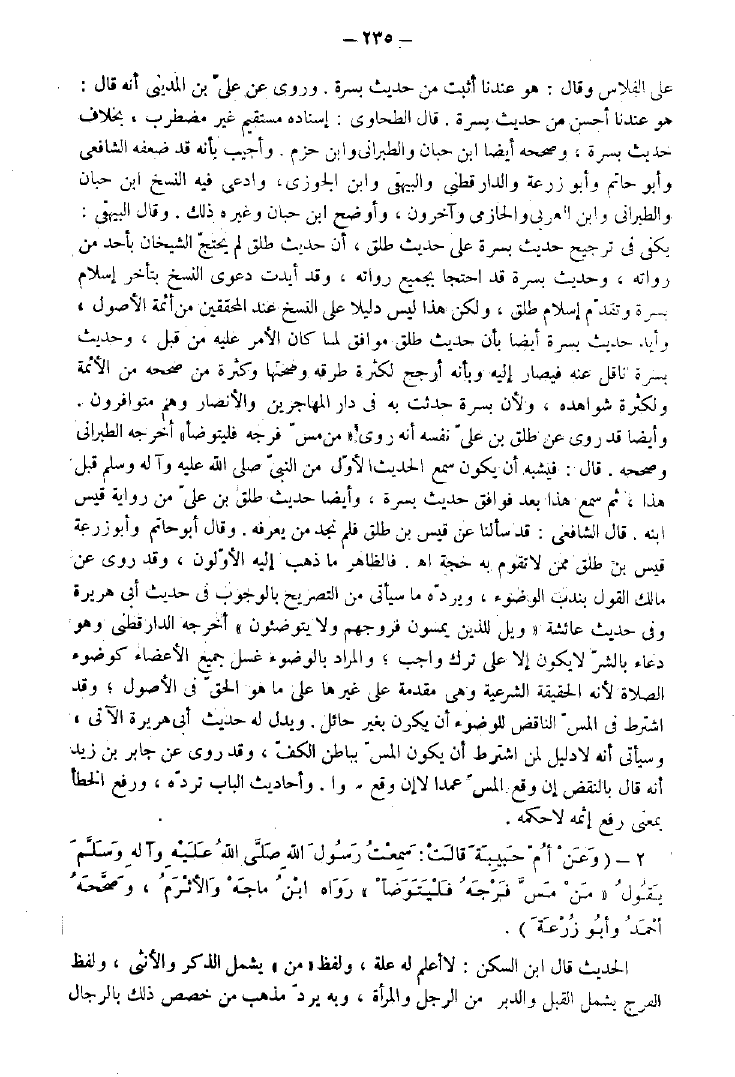 — ٢٣٥ —
على الفلاس وقال : هو عندنا أثبت من حديث بسرة . وروى عن علىّ بن المدينى أنه قال :
هو عندنا أحسن من حديث بسرة . قال الطحاوى : إسناده مستقيم غير مضطرب ، بخلاف
حديث بسرة ، وصححه أيضا ابن حبان والطبرانى وابن حزم . وأجيب بأنه قد ضعفه الشافعى
وأبو حاتم وأبو زرعة والدارقطنى والبيهقى وابن الجوزى، وادعى فيه النسخ ابن حبان
والطبرانى وابن العربى والحازمى وآخرون ، وأوضح ابن حبان وغيره ذلك . وقال البيهقى :
يكفى فى ترجيح حديث بسرة على حديث طلق ، أن حديث طلق لم يحتجّ الشيخان بأحد من
رواته ، وحديث بسرة قد احتجا بجميع رواته ، وقد أيدت دعوى النسخ بتأخر إسلام
بسرة وتقدّم إسلام طلق ، ولكن هذا ليس دليلا على النسخ عند المحققين من أئمة الأصول ،
وأيد حديث بسرة أيضا بأن حديث طلق موافق لما كان الأمر عليه من قبل ، وحديث
بسرة ناقل عنه فيصار إليه وبأنه أرجح لكثرة طرقه وصحتها وكثرة من صححه من الأئمة
ولكثرة شواهده ، ولأن بسرة حدثت به فى دار المهاجرين والأنصار وهم متوافرون .
وأيضا قد روى عن طلق بن علىّ نفسه أنه روى « من مسّ فرجه فليتوضأ » أخرجه الطبرانى
وصححه . قال : فيشبه أن يكون سمع الحديث الأوّل من النبىّ صلى الله عليه وآله وسلم قبل
هذا ، ثم سمع هذا بعد فوافق حديث بسرة ، وأيضا حديث طلق بن علىّ من رواية قيس
ابنه . قال الشافعى : قد سألنا عن قيس بن طلق فلم نجد من يعرفه . وقال أبو حاتم وأبو زرعة
قيس بن طلق ممن لا تقوم به حجة اهـ . فالظاهر ما ذهب إليه الأوّلون ، وقد روى عن
مالك القول بندب الوضوء ، ويردّه ما سيأتى من التصريح بالوجوب فى حديث أبى هريرة
وفى حديث عائشة « ويل للذين يمسون فروجهم ولا يتوضئون » أخرجه الدارقطنى وهو
دعاء بالشرّ لا يكون إلا على ترك واجب ؛ والمراد بالوضوء غسل جميع الأعضاء كوضوء
الصلاة لأنه الحقيقة الشرعية وهى مقدمة على غيرها على ما هو الحقّ فى الأصول ؛ وقد
اشترط فى المسّ الناقض للوضوء أن يكون بغير حائل . ويدل له حديث أبى هريرة الآتى ،
وسيأتى أنه لا دليل لمن اشترط أن يكون المسّ بباطن الكفّ ، وقد روى عن جابر بن زيد
أنه قال بالنقض إن وقع المسّ عمدا لا إن وقع وا . وأحاديث الباب تردّه ، ورفع الخطأ
بمعنى رفع إثمه لا حكمه .
٢ – ( وَعَنْ أُمّ حَبِيبَةَ قَالَتْ: سَمِعْتُ رَسُولَ اللهِ صَلَّى اللهُ عَلَيْهِ وآلهِ وَسَلَّمَ
يَقُولُ « مَنْ مَسَّ فَرْجَهُ فَلْيَتَوَضَّأْ » رَوَاه ابْنُ ماجَهْ وَالأثْرَمُ ، وَصَحَّحَهُ
أحْمَدُ وأبُو زُرْعَةَ ) .
الحديث قال ابن السكن : لا أعلم له علة ، ولفظ « من » يشمل الذكر والأنثى ، ولفظ
الفرج يشمل القبل والدبر من الرجل والمرأة ، وبه يردّ مذهب من خصص ذلك بالرجال